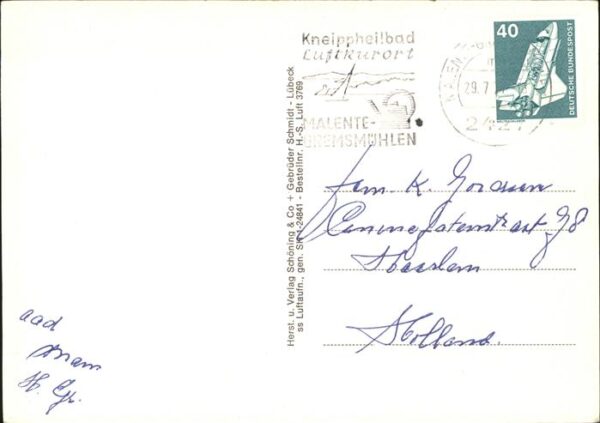 Kneippheilbad
Luftkurort
MALENTE-
GREMSMÜHLEN
29.7
2427
40
DEUTSCHE BUNDESPOST
Herst. u. Verlag Schöning & Co + Gebrüder Schmidt - Lübeck
ss Luftaufn., gen. SH 1-24841 - Bestellnr. H.-S. Luft 3769
Fam. K.
78
Haarlem
Holland.
aad
H. Gr.